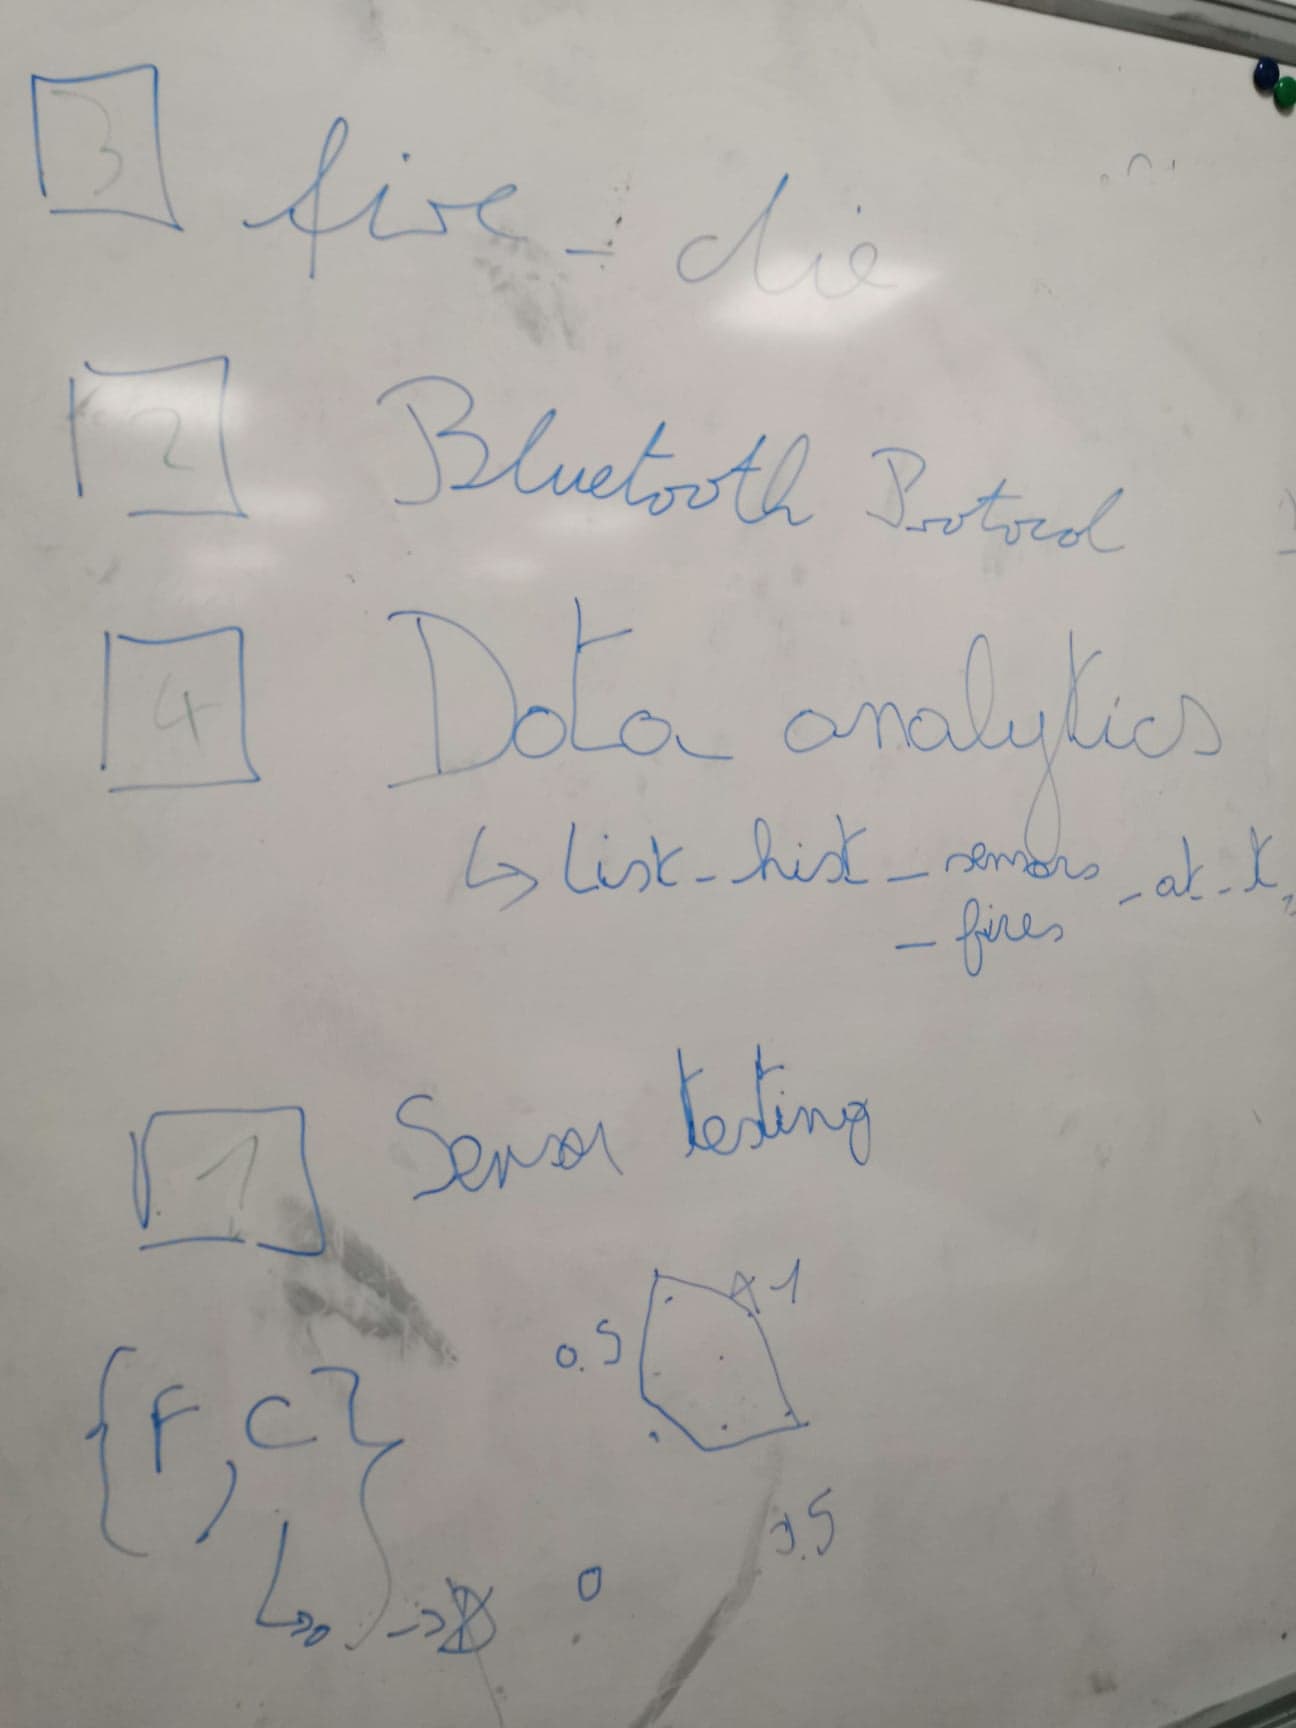 3 fire_die
2 Bluetooth Protocol
4 Data analytics
↳ list_hist_sensors_at_t
_fires
1 Sensor testing
1
0.5
{F, C}
0.5
0